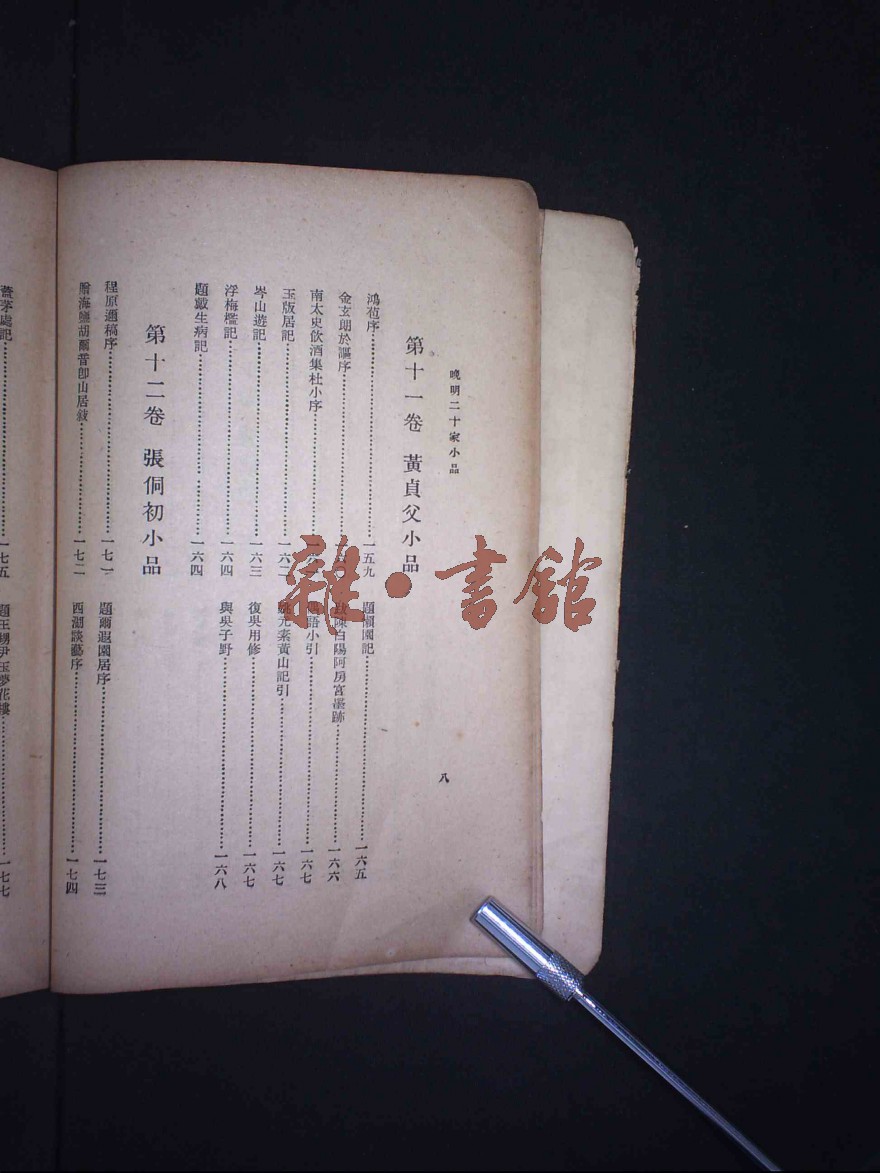 晚明二十家小品
八
第十一卷 黃貞父小品
鴻苞序 一五九
金玄朗於謳序
南太史飲酒集杜小序
玉版居記 一六二
岑山遊記 一六三
浮梅檻記 一六四
題戴生病記 一六四
題槜園記 一六五
陳白陽阿房宮墨跡 一六六
語小引 一六七
姚元素黃山記引 一六七
復吳用修 一六七
與吳子野 一六八
第十二卷 張侗初小品
程原邇稿序 一七一
贈海鹽胡爾音卽山居敍 一七二
題爾遐園居序 一七三
西湖談藝序 一七四
蓋茅處記 一七五
題王甥尹玉夢花樓 一七七
雜·書館